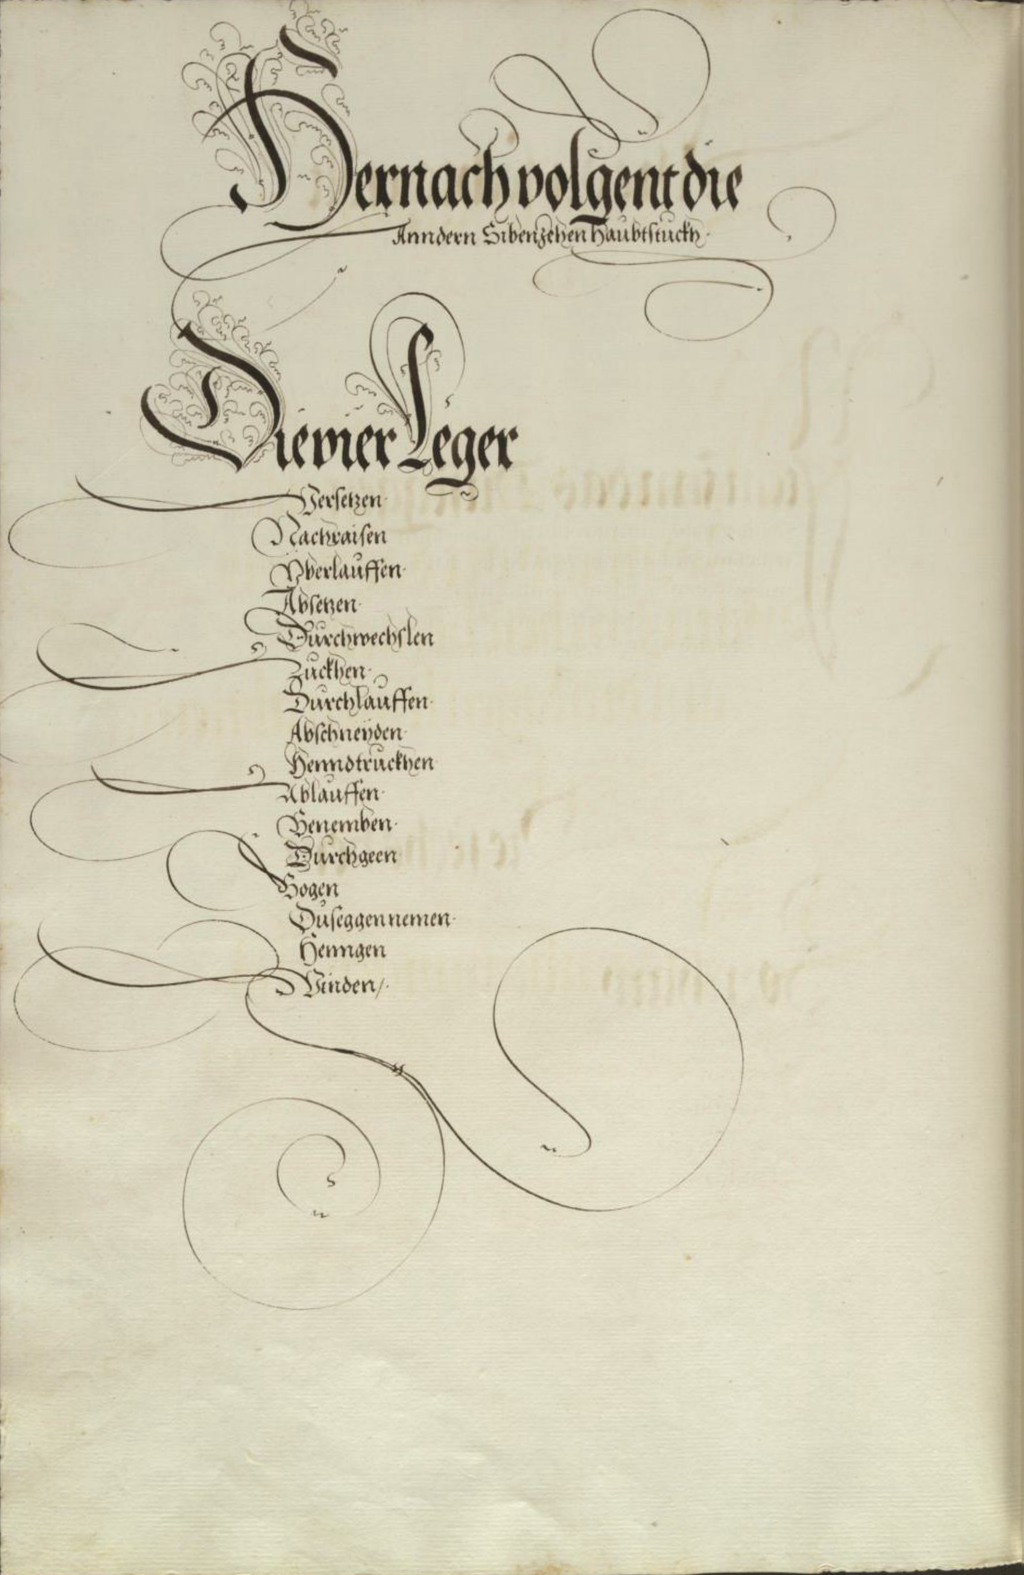 Hernach volgent die
Anndern Sibenzehen Haubtstuckh.
Die vier Leger
Versetzen.
Nachraisen
Vberlauffen.
Absetzen.
Durchwechslen
Zuckhen.
Durchlauffen.
Abschneyden.
Henndtruckhen
Ablauffen.
Benemben.
Durchgeen
Bogen
Duseggen nemen.
Henngen
Winden/.